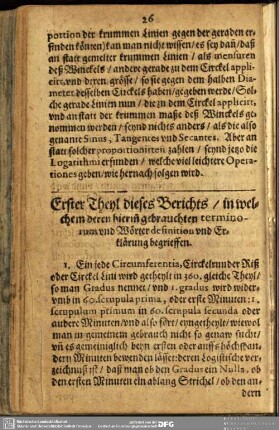 26
portion der krummen Linien gegen der geraden er-
finden können) kan man nicht wissen/ es sey dañ/ daß
an statt gemelter krummen Linien / als mensuren
deß Winckels / andere gerade zu dem Circkel applici-
ert/vnd deren grösse / so sie gegen dem halben Dia-
meter desselben Circkels haben/gegeben werde/ Sol-
che gerade Linien nun / die zu dem Circkel applicirt/
vnd an statt der krummen maße deß Winckels ge-
nommen werden / seynd nichts anders / als die also
genante Sinus, Tangentes vnd Secantes. Aber an
statt solcher proportionirten zahlen / seynd jetzo die
Logarithmi erfunden / welche viel leichtere Opera-
tiones geben/ wie hernach folgen wird.
Erster Theyl dieses Berichts / in wel-
chem deren hierin̄ gebrauchten termino-
rum vnd Wörter definition vnd Er-
klärung begrieffen.
1. Ein jede Circumferentia, Circkelrunder Riß
oder Circkel Lini wird getheylt in 360. gleiche Theyl/
so man Gradus nennet/ vnd 1. gradus wird wider-
vmb in 60. scrupula prima, oder erste Minuten: 1.
scrupulum primum in 60. scrupula secunda oder
andere Minuten/vnd also fort/ eyngetheylt/ wiewol
man in gemeinem gebrauch nicht so genaw sucht/
vñ es gemeiniglich beym ersten oder auffs höchst an-
dern Minuten bewenden lässet: deren Logistische ver-
zeichnuß ist / daß man ob den Gradus ein Nulla, ob
den ersten Minuten ein ablang Strichel / ob den an-
dern